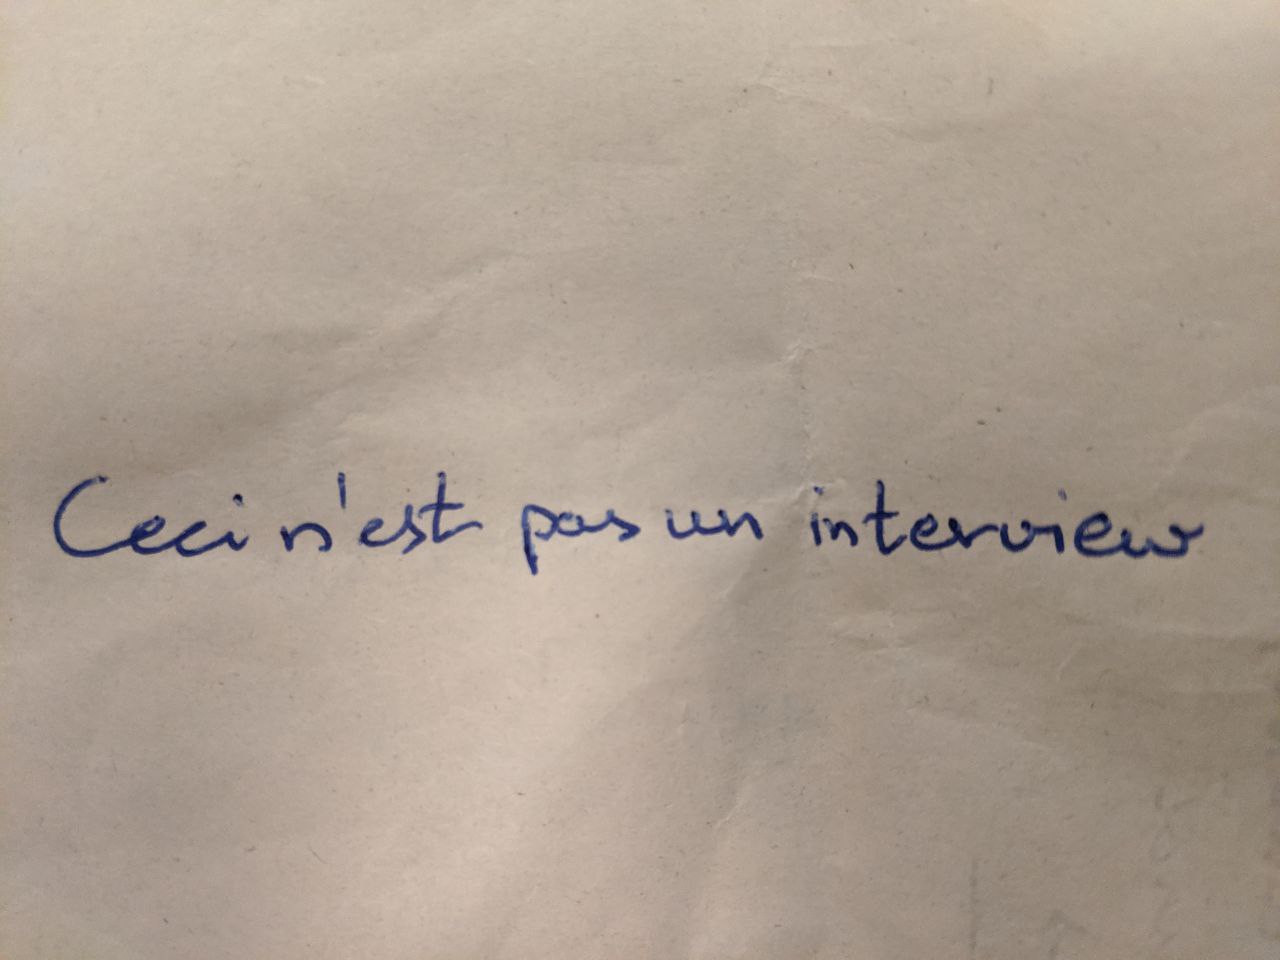 Ceci n'est pas un interview